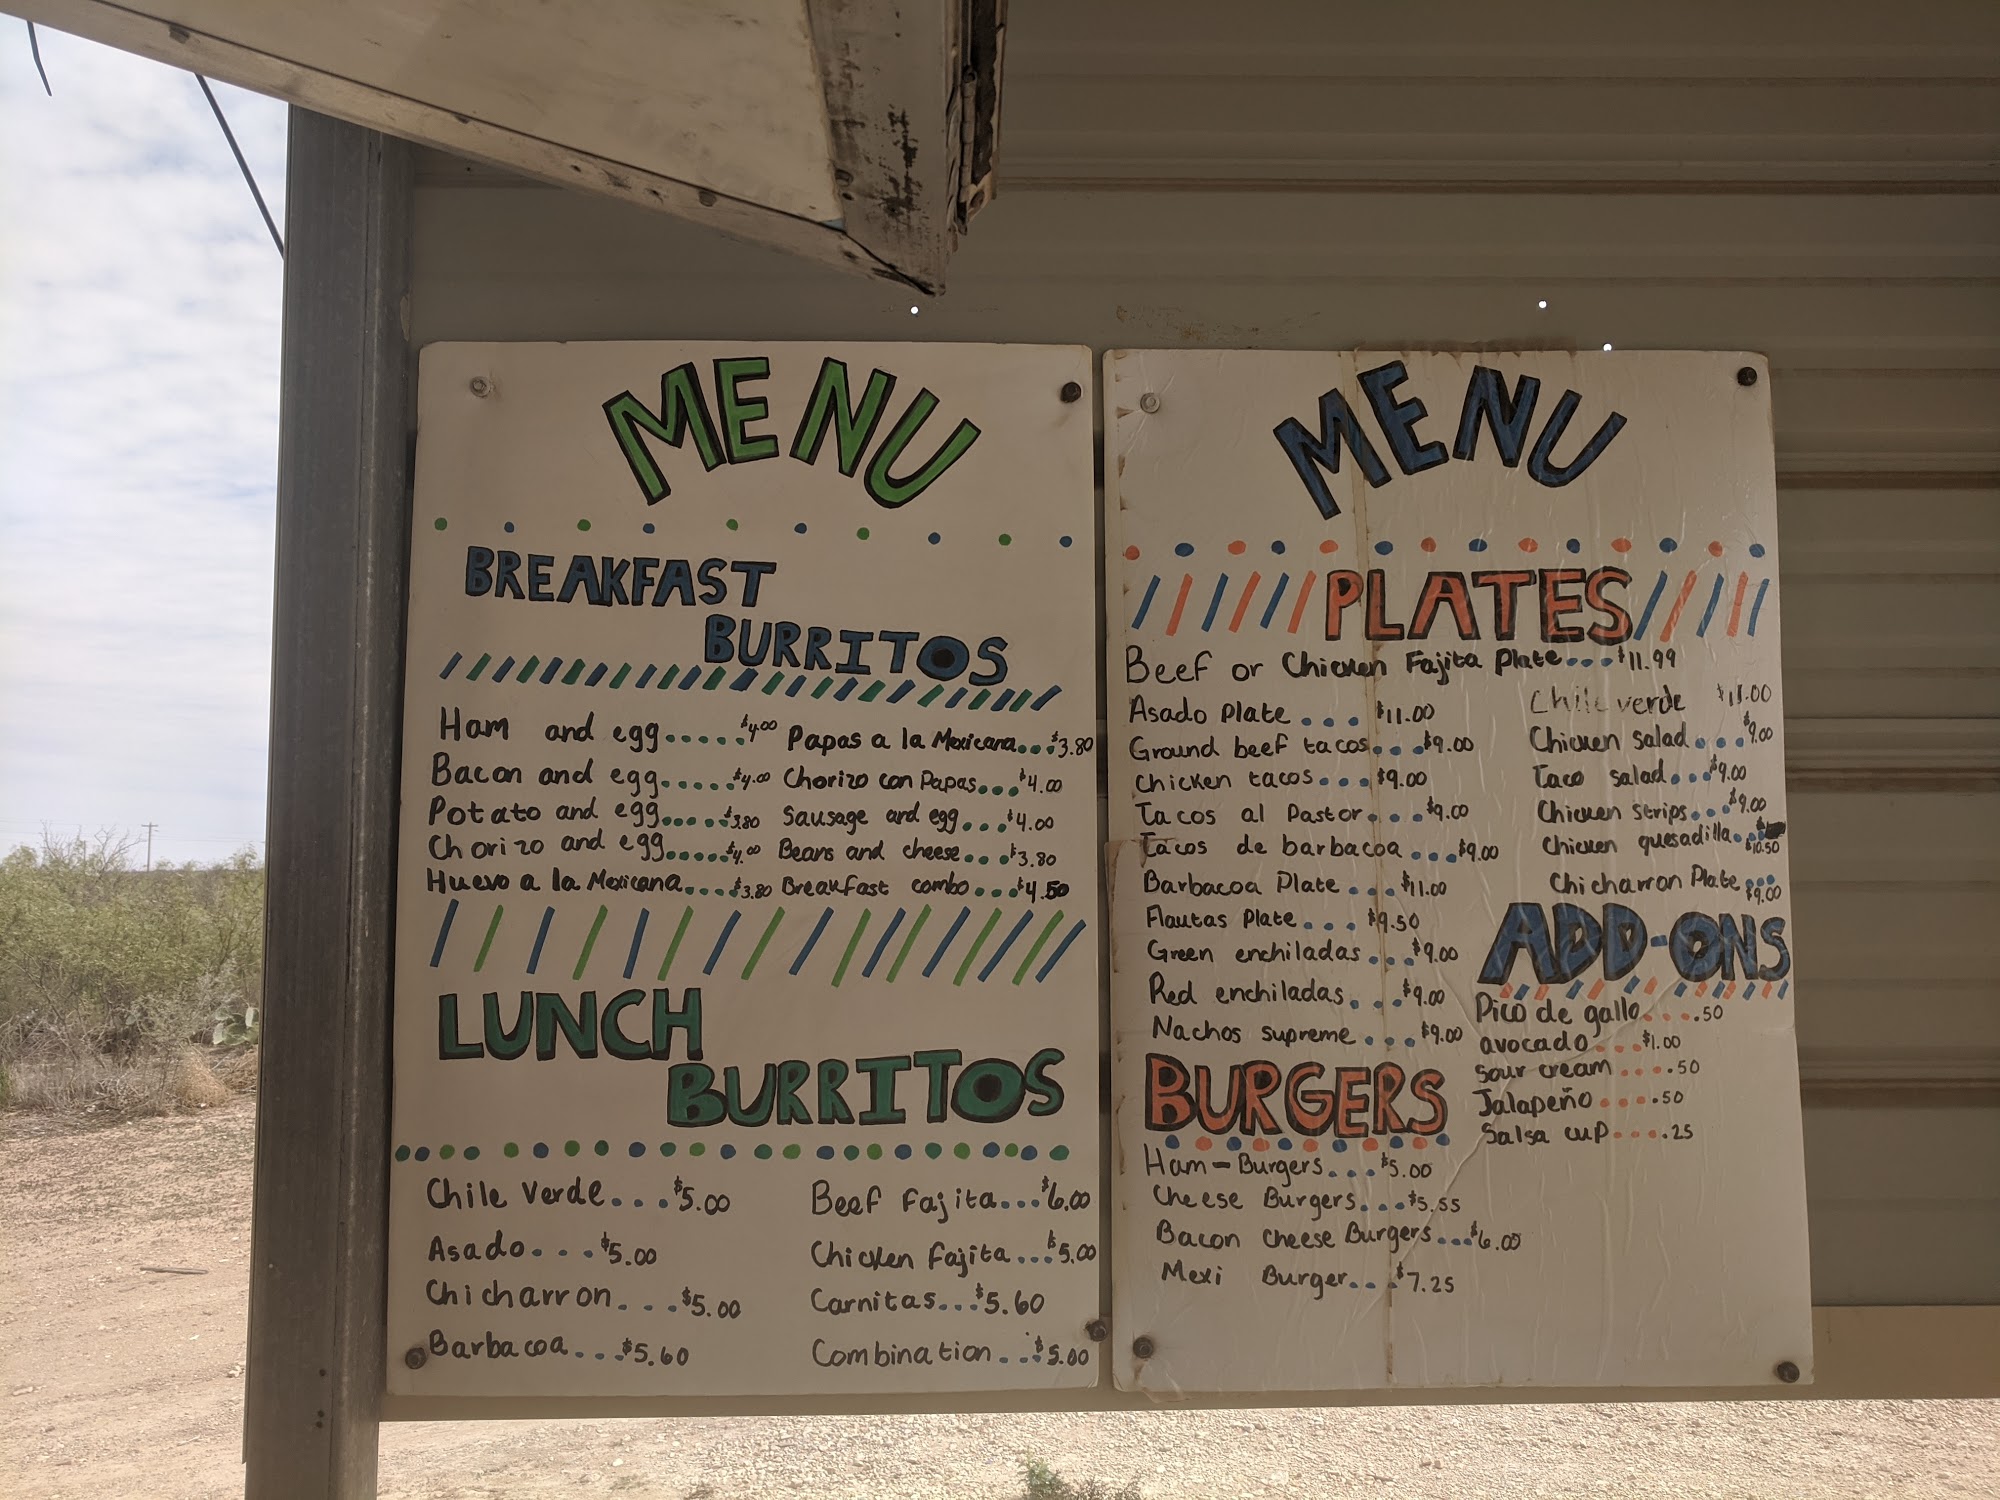 MENU
BREAKFAST
BURRITOS
Ham and egg.....$4.00
Bacon and egg.....$4.00
Potato and egg.....$3.80
Chorizo and egg.....$4.00
Huevo a la Mexicana....$3.80
Papas a la Mexicana...$3.80
Chorizo con Papas...$4.00
Sausage and egg...$4.00
Beans and cheese...$3.80
Breakfast combo...$4.50
LUNCH
BURRITOS
Chile Verde...$5.00
Asado...$5.00
Chicharron...$5.00
Barbacoa...$5.60
Beef Fajita...$6.00
Chicken Fajita...$5.00
Carnitas...$5.60
Combination...$5.00
MENU
PLATES
Beef or Chicken Fajita Plate...$11.99
Asado Plate...$11.00
Ground beef tacos...$9.00
Chicken tacos...$9.00
Tacos al Pastor...$9.00
Tacos de barbacoa...$9.00
Barbacoa Plate...$11.00
Flautas Plate...$9.50
Green enchiladas...$9.00
Red enchiladas...$9.00
Nachos supreme...$9.00
Chile verde $11.00
Chicken salad...$9.00
Taco salad...$9.00
Chicken strips...$9.00
Chicken quesadilla...$10.50
Chicharron Plate...$9.00
ADD-ONS
Pico de gallo....50
avocado...$1.00
Sour cream....50
Jalapeño....50
Salsa cup....25
BURGERS
Ham-Burgers...$5.00
Cheese Burgers...$5.55
Bacon cheese Burgers...$6.00
Mexi Burger...$7.25